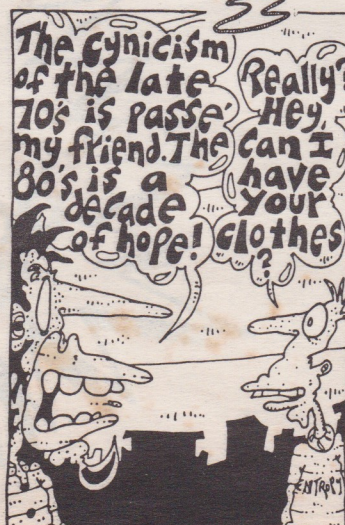 The Cynicism
of the late
70's is passe'
my friend. The
80's is a
decade
of hope!
Really?
Hey,
can I
have
your
clothes
?
ENTROPY